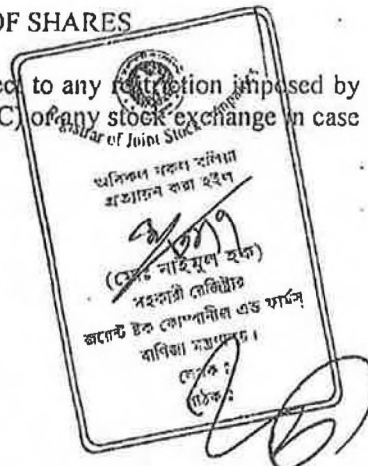 OF SHARES
ect to any restriction imposed by
C) or any stock exchange in case
Registrar of Joint Stock Companies
অবিকল নকল বলিয়া
প্রত্যায়ন করা হইল
(মোঃ নাইমুল হক)
সহকারী রেজিষ্টার
জয়েন্ট ষ্টক কোম্পানীজ এন্ড ফার্মস্
বাণিজ্য মন্ত্রণালয়।
লেখক :
পাঠক :